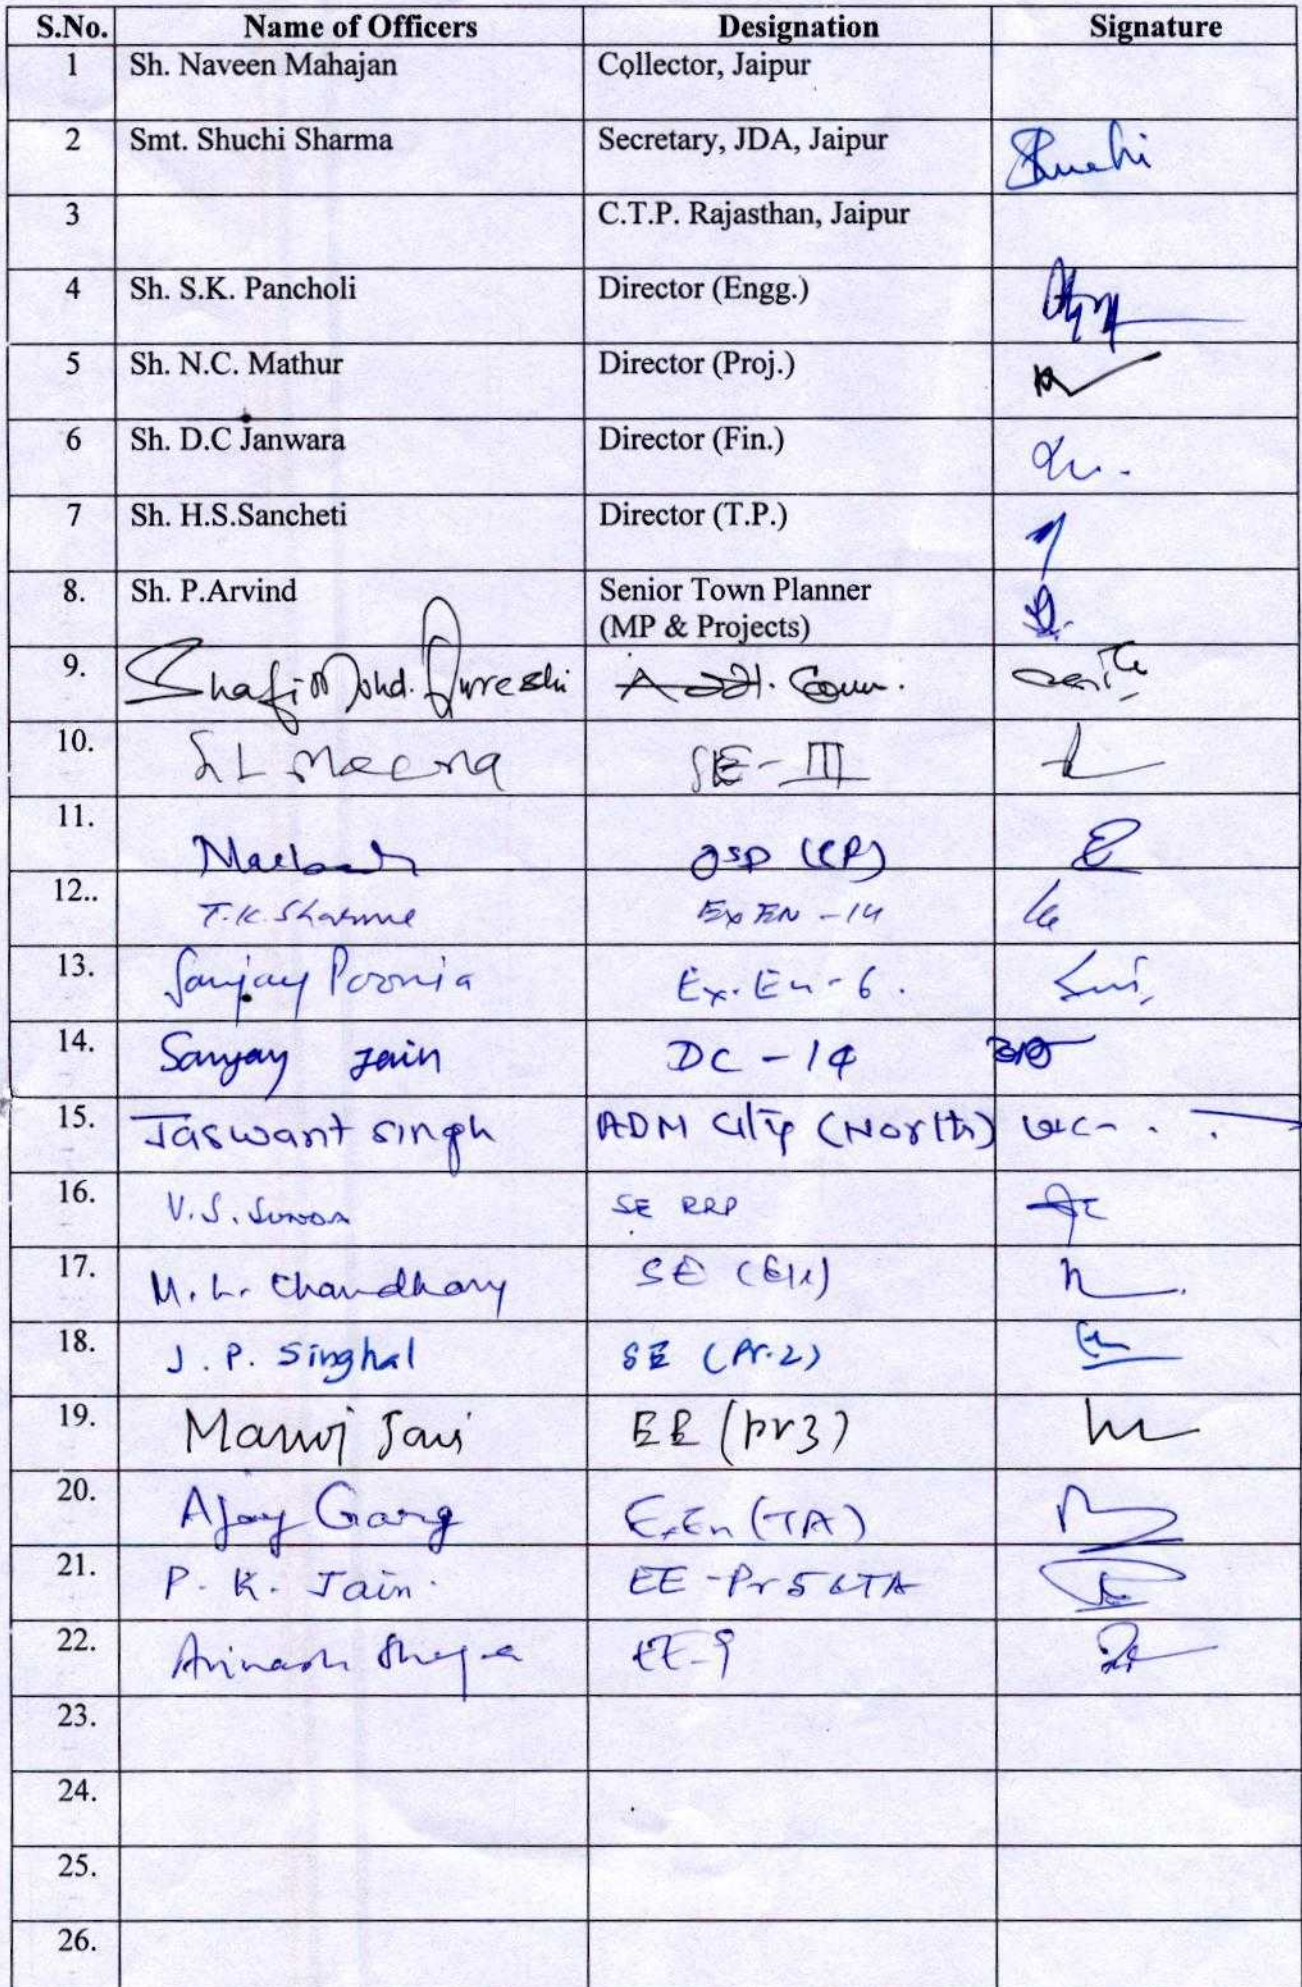 S.No. Name of Officers Designation Signature
1 Sh. Naveen Mahajan Collector, Jaipur
2 Smt. Shuchi Sharma Secretary, JDA, Jaipur Shuchi
3 C.T.P. Rajasthan, Jaipur
4 Sh. S.K. Pancholi Director (Engg.)
5 Sh. N.C. Mathur Director (Proj.)
6 Sh. D.C Janwara Director (Fin.)
7 Sh. H.S.Sancheti Director (T.P.)
8. Sh. P.Arvind Senior Town Planner
(MP & Projects)
9. Shafi Mohd. Qureshi Addl. Comm.
10. SL Meena SE-III
11.
12.. T.K. Sharma ExEN-14
13. Sanjay Poonia Ex.En-6.
14. Sanjay Jain DC-14
15. Jaswant singh ADM City (North)
16. V.S. Sunda SE RRP
17. M.L. Chaudhary SE (Ele)
18. J.P. Singhal SE (Pr.2)
19. Manoj Jain EE (pr3)
20. Ajay Garg Ex.En (TA)
21. P.K. Jain. EE-Pr5 &TA
22. Avinash EE-9
23.
24.
25.
26.